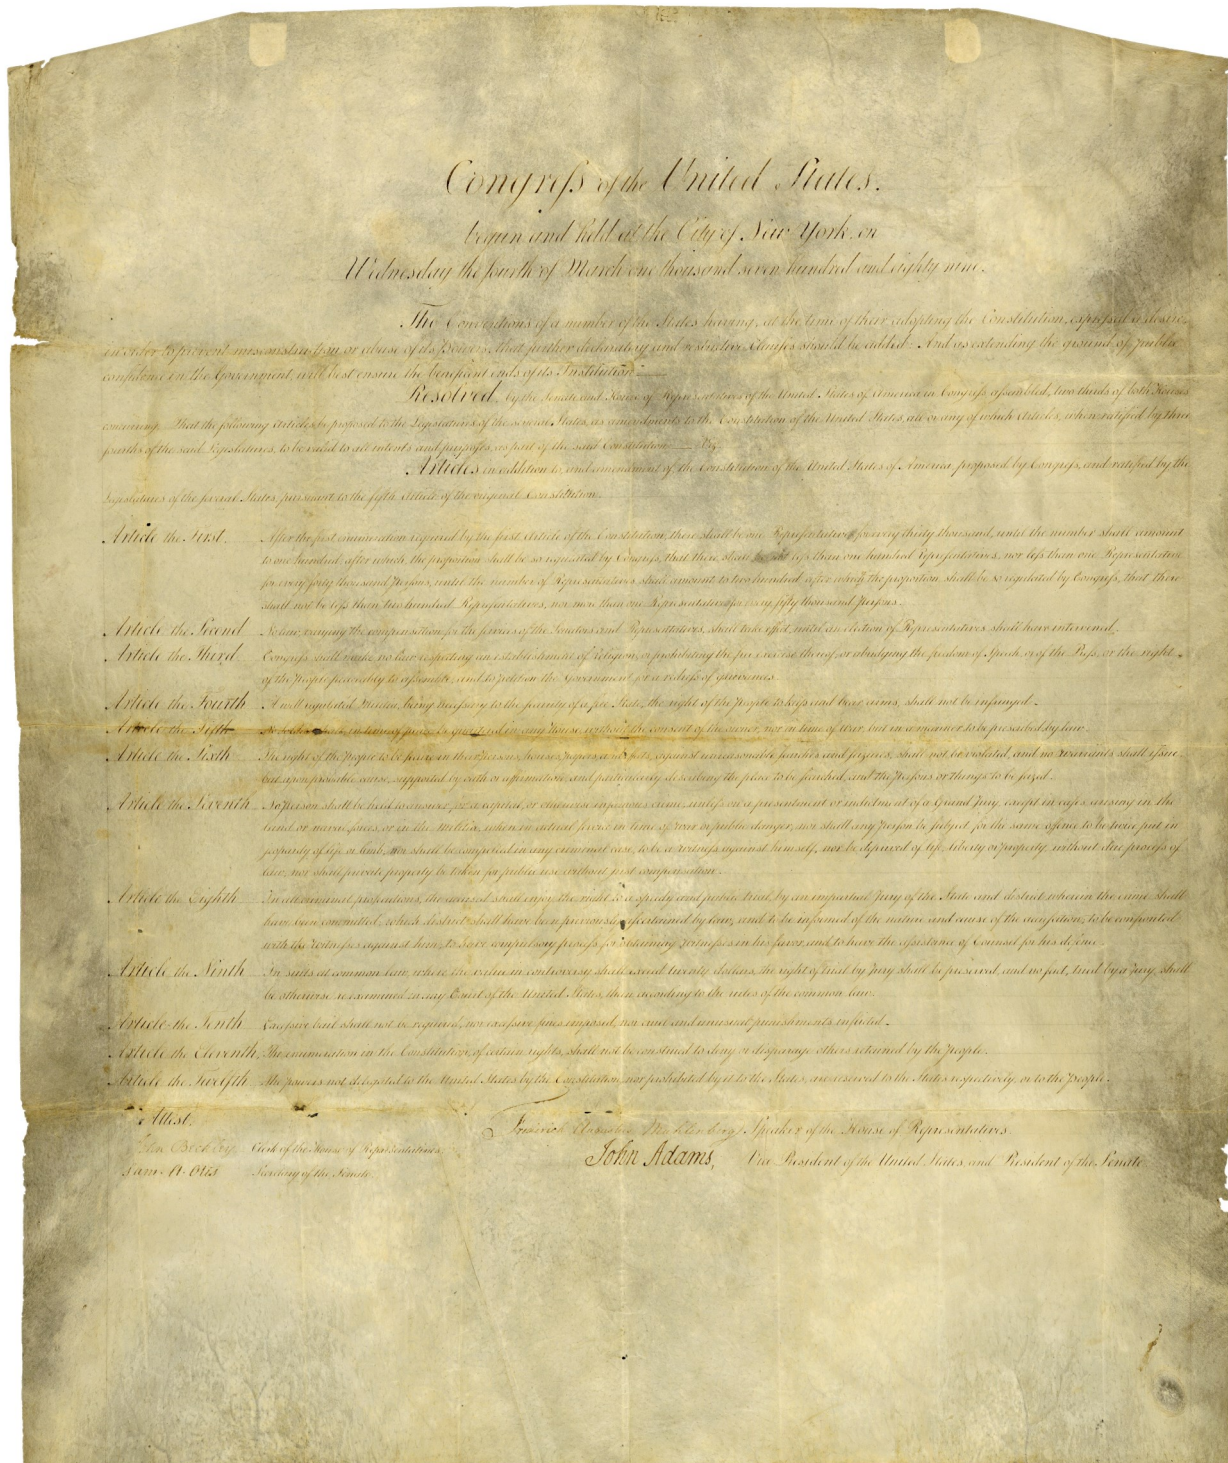 Congress of the United States.
begun and held at the City of New York, on
Wednesday the fourth of March one thousand seven hundred and eighty nine.
The Conventions of a number of the States having, at the time of their adopting the Constitution, expressed a desire,
in order to prevent misconstruction or abuse of its powers, that further declaratory and restrictive clauses should be added: And as extending the ground of public
confidence in the Government, will best ensure the beneficent ends of its Institution
Resolved, by the Senate and House of Representatives of the United States of America in Congress assembled, two thirds of both Houses
concurring, That the following Articles be proposed to the Legislatures of the several States, as amendments to the Constitution of the United States, all or any of which Articles, when ratified by three
fourths of the said Legislatures, to be valid to all intents and purposes, as part of the said Constitution Viz.
Articles in addition to, and amendment of the Constitution of the United States of America, proposed by Congress, and ratified by the
Legislatures of the several States, pursuant to the fifth Article of the original Constitution.
Article the First. After the first enumeration required by the first Article of the Constitution, there shall be one Representative for every thirty thousand, until the number shall amount
to one hundred, after which, the proportion shall be so regulated by Congress, that there shall be not less than one hundred Representatives, nor less than one Representative
for every forty thousand persons, until the number of Representatives shall amount to two hundred, after which the proportion shall be so regulated by Congress, that there
shall not be less than two hundred Representatives, nor more than one Representative for every fifty thousand persons.
Article the Second No law, varying the compensation for the services of the Senators and Representatives, shall take effect, until an election of Representatives shall have intervened.
Article the Third. Congress shall make no law respecting an establishment of religion, or prohibiting the free exercise thereof, or abridging the freedom of Speech, or of the Press, or the right
of the People peaceably to assemble, and to petition the Government for a redress of grievances.
Article the Fourth A well regulated Militia, being necessary to the security of a free State, the right of the People to keep and bear arms, shall not be infringed.
Article the Fifth No Soldier shall, in time of peace be quartered in any House, without the consent of the owner, nor in time of war, but in a manner to be prescribed by law.
Article the Sixth The right of the People to be secure in their persons, houses, papers, and effects, against unreasonable searches and seizures, shall not be violated, and no warrants shall issue
but upon probable cause, supported by oath or affirmation, and particularly describing the place to be searched, and the persons or things to be seized.
Article the Seventh No person shall be held to answer for a capital, or otherwise infamous crime, unless on a presentment or indictment of a Grand Jury, except in cases arising in the
land or naval forces, or in the Militia, when in actual service in time of war or public danger, nor shall any person be subject for the same offence to be twice put in
jeopardy of life or limb, nor shall be compelled in any criminal case, to be a witness against himself, nor be deprived of life, liberty or property, without due process of
law, nor shall private property be taken for public use without just compensation.
Article the Eighth In all criminal prosecutions, the accused shall enjoy the right to a speedy and public trial, by an impartial Jury of the State and district wherein the crime shall
have been committed, which district shall have been previously ascertained by law, and to be informed of the nature and cause of the accusation, to be confronted
with the witnesses against him, to have compulsory process for obtaining witnesses in his favor, and to have the assistance of Counsel for his defence.
Article the Ninth In suits at common law, where the value in controversy shall exceed twenty dollars, the right of trial by Jury shall be preserved, and no fact, tried by a Jury, shall
be otherwise re-examined in any Court of the United States, than according to the rules of the common law.
Article the Tenth Excessive bail shall not be required, nor excessive fines imposed, nor cruel and unusual punishments inflicted.
Article the Eleventh The enumeration in the Constitution, of certain rights, shall not be construed to deny or disparage others retained by the People.
Article the Twelfth The powers not delegated to the United States by the Constitution, nor prohibited by it to the States, are reserved to the States respectively, or to the People.
Attest.
Frederick Augustus Muhlenberg Speaker of the House of Representatives.
John Beckley, Clerk of the House of Representatives.
John Adams, Vice President of the United States, and President of the Senate
Sam. A. Otis Secretary of the Senate.